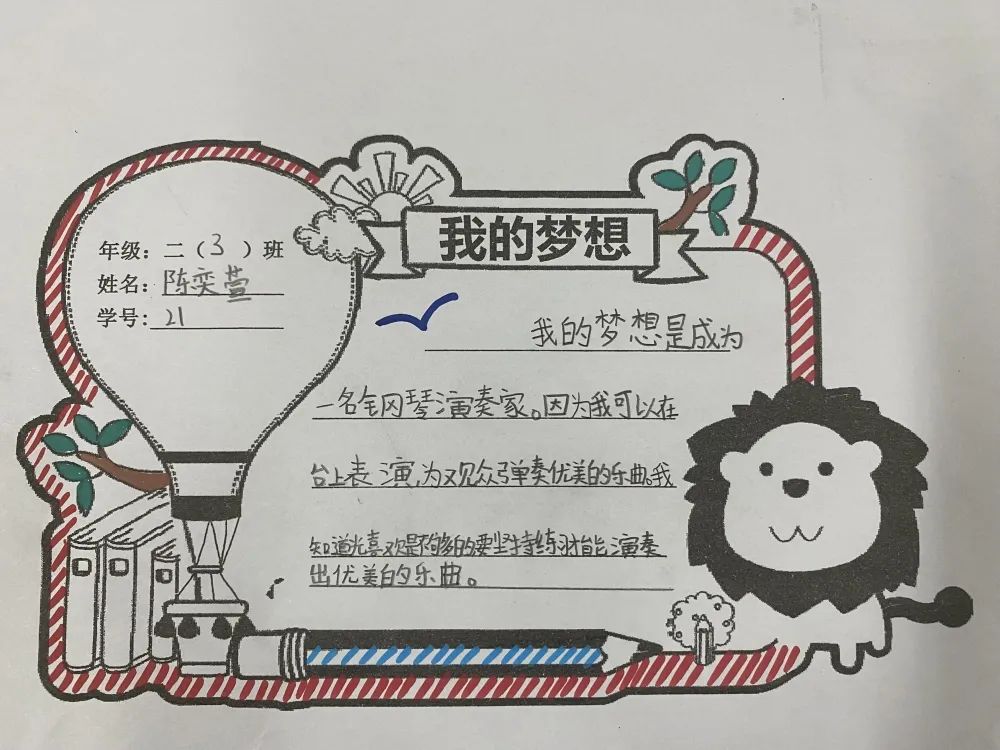 我的梦想
年级：二（3）班
姓名：陈奕萱
学号：21
我的梦想是成为
一名钢琴演奏家。因为我可以在
台上表演，为观众弹奏优美的乐曲。我
知道光喜欢是不够的要坚持练习才能演奏
出优美的乐曲。